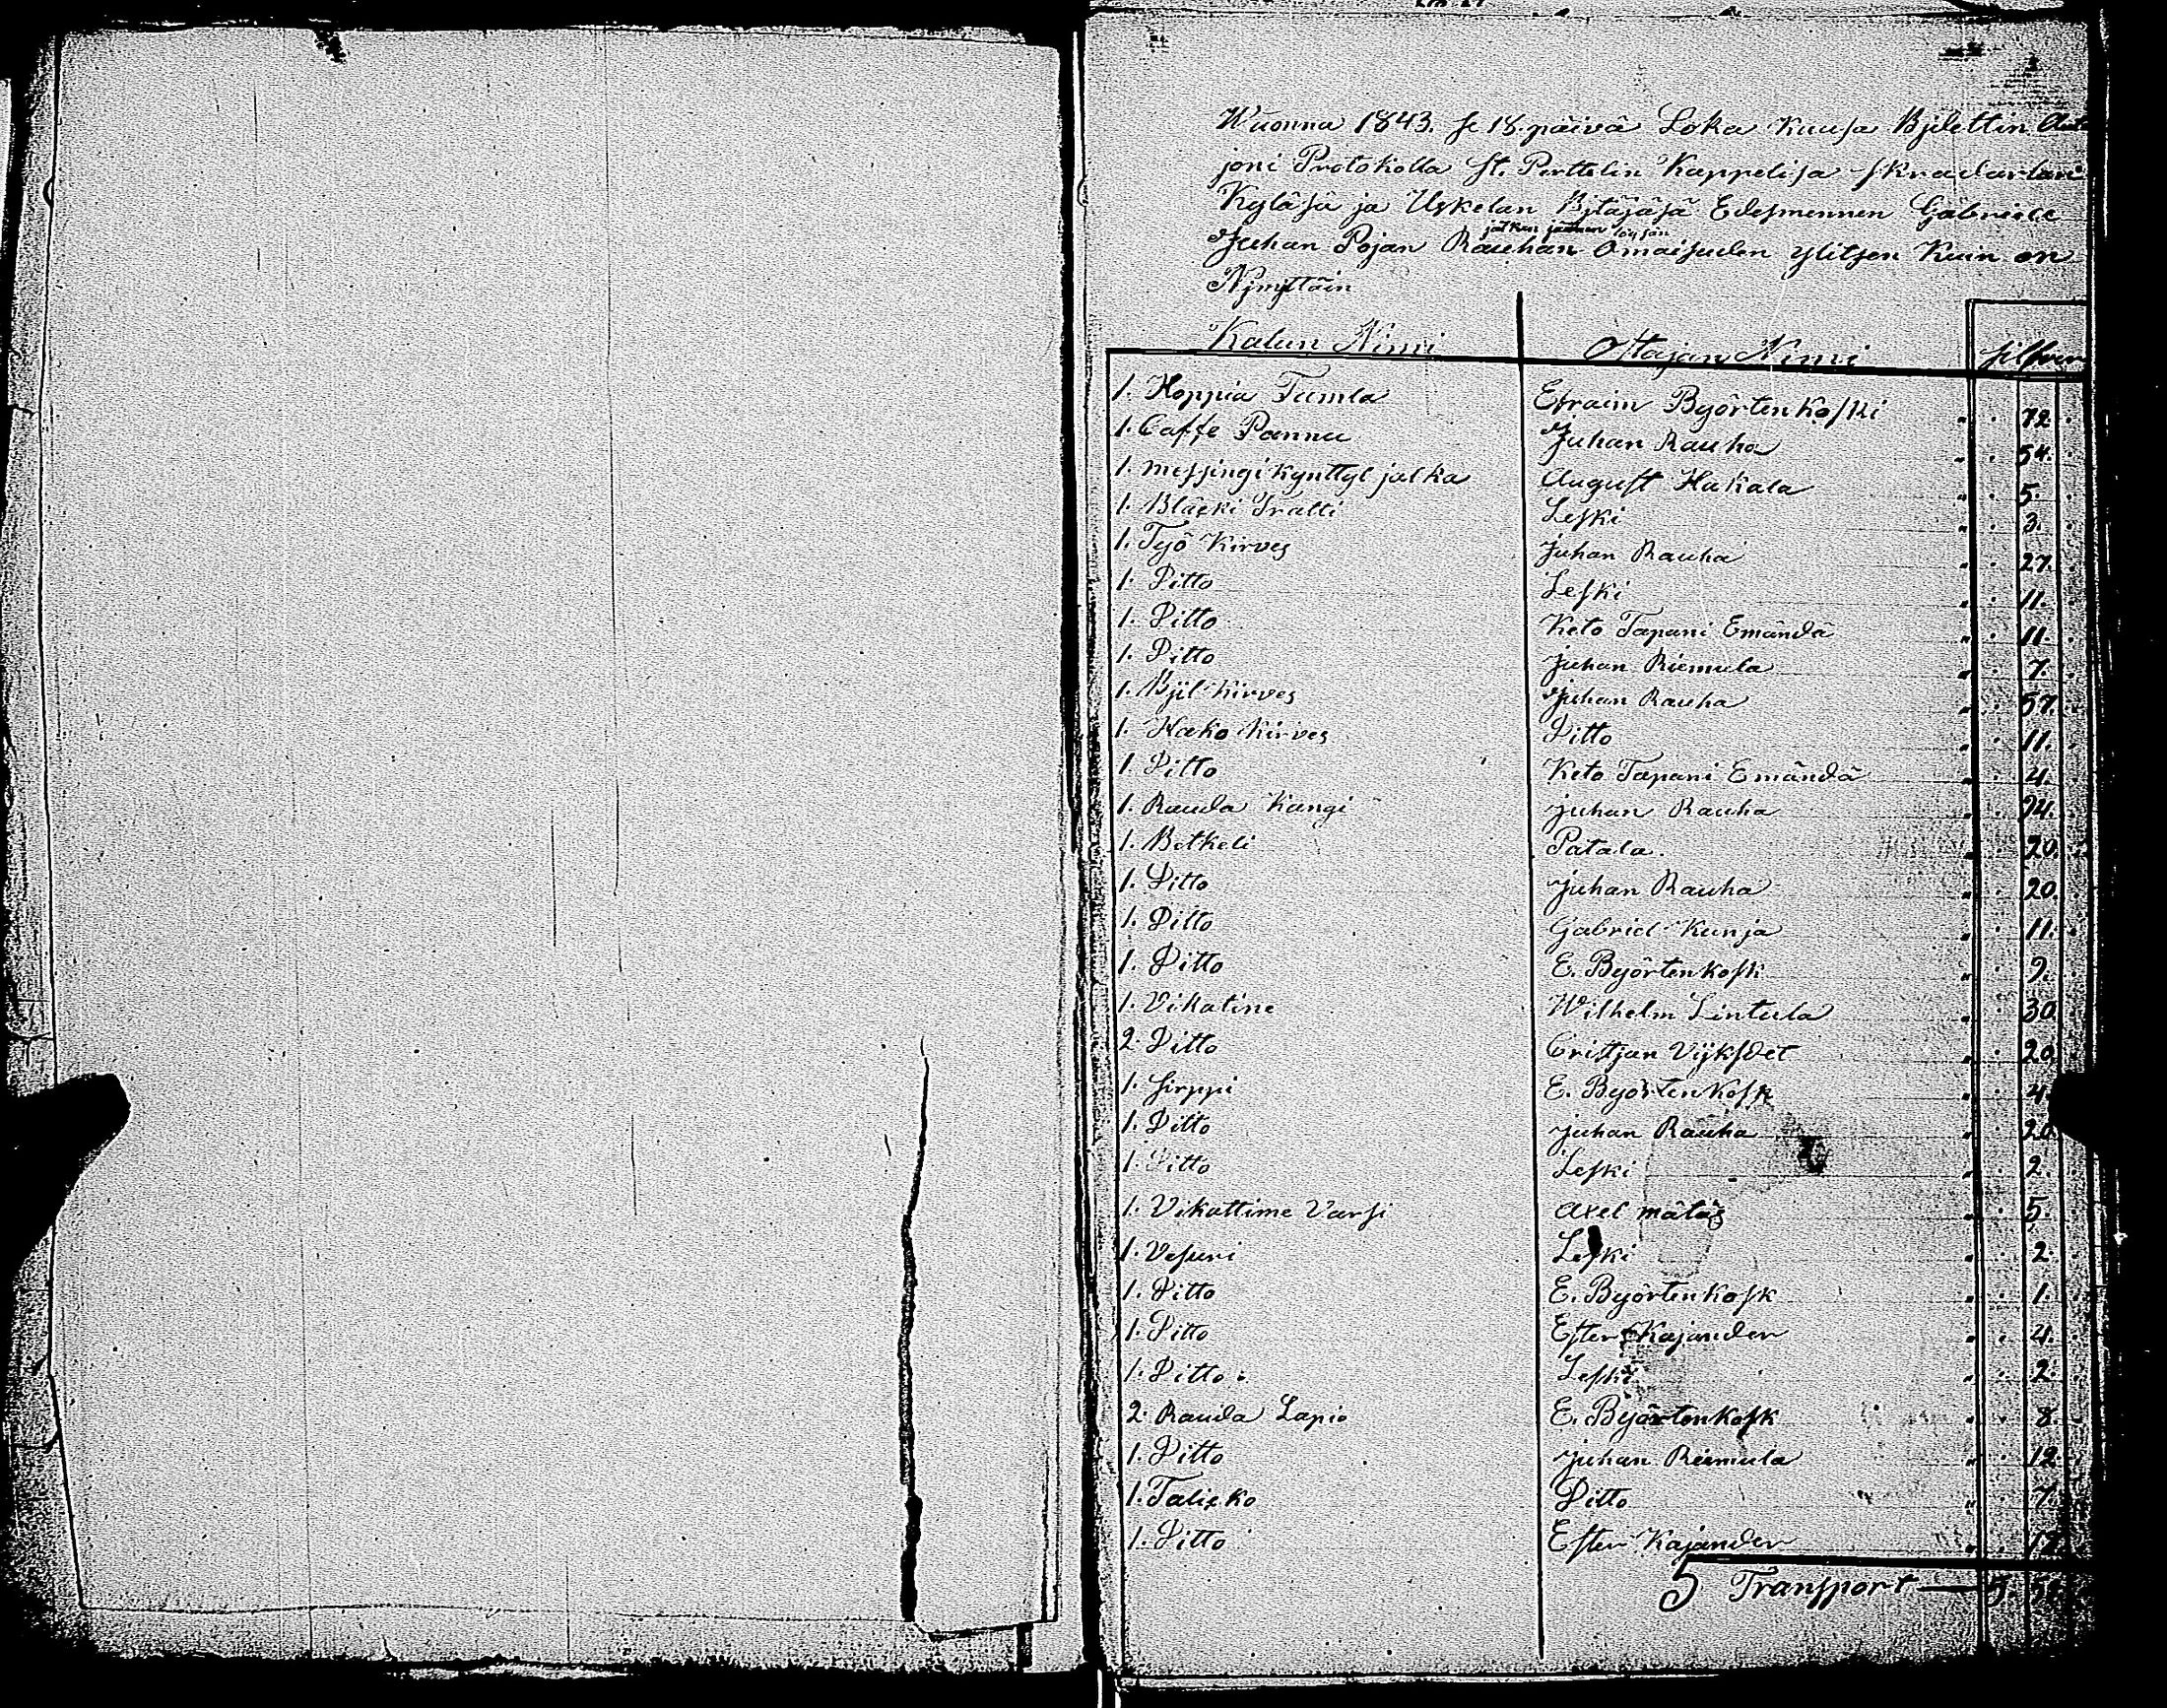 Wuonna 1843. se 18. päivä Loka Kuusa Bjilettin
joni Protokolla St. Perttelin Kappelisa
Kyläsä ja Uskelan Bitäjäsä Edesmennen Gabriele
jälken jäänen löysän
Juhan Pojan Rauhan Omaisuden ylitsen Kuin on
Nimittäin
Kalun Nimi Ostajan Nimi Silfver
1. Hoppia Tumla Efraim Byörtenkoski 72.
1. Caffe Pannu Juhan Rauha 54.
1. messingi kynttyl jalka August Hakala 5.
1. Bläcki Tratti Leski 3.
1. Työ Kirves Juhan Rauha 27.
1. Ditto Leski 11.
1. Ditto Keto Tapani Emändä 11.
1. Ditto Juhan Riemula 7.
1. Bjil Kirves Juhan Rauha 57.
1. Hako Kirves Ditto 11.
1. Ditto Keto Tapani Emändä 4.
1. Rauda Kangi Juhan Rauha 94.
1. Betkeli Patala. 20.
1. Ditto Juhan Rauha 20.
1. Ditto Gabriel Kunja 11.
1. Ditto E. Byörtenkosk 9.
1. Vikatine Wilhelm Lintula 30.
2. Ditto Cristjan 20.
1. Sirppi E. Byörtenkosk 4.
1. Ditto Juhan Rauha 20.
1. Ditto Leski 2.
1. Vikattime Varsi Axel mätäs 5.
1. Vesuri Leski 2.
1. Ditto E. Byörtenkosk 1.
1. Ditto Ester Kajander 4.
1. Ditto Leski 2.
2. Rauda Lapio E. Byörtenkosk 8.
1. Ditto Juhan Riemula 12.
1. Talicko Ditto 7.
1. Ditto Ester Kajander
5 Transport 5.